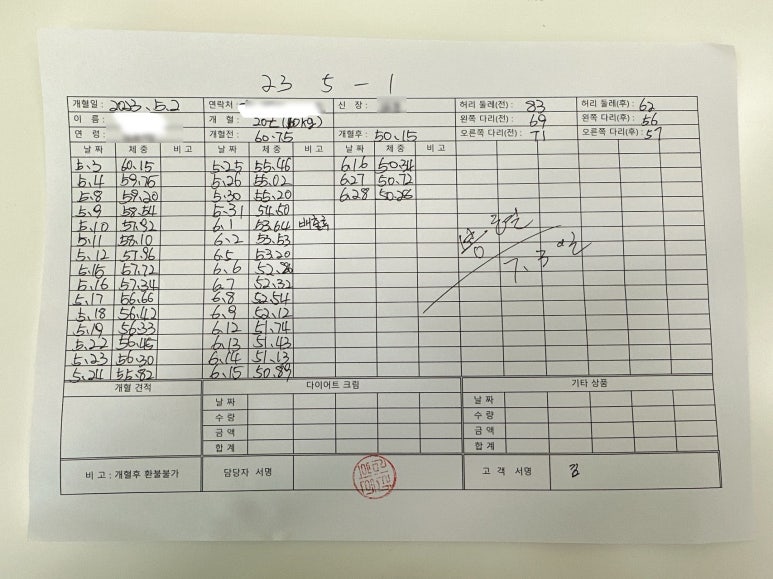 23 5-1
개혈일 : 2023.5.2 연락처 신 장 : 허리 둘레(전) : 83 허리 둘레(후) : 62
이 름 : 개 혈 : 20t (10kg) 왼쪽 다리(전) : 69 왼쪽 다리(후) : 56
연 령 : 개혈전 : 60.75 개혈후 : 50.15 오른쪽 다리(전) : 71 오른쪽 다리(후) : 57
날 짜 체 중 비 고 날 짜 체 중 비 고 날 짜 체 중 비 고
5.3 60.15 5.25 55.46 6.16 50.34
5.4 59.75 5.26 55.02 6.27 50.72
5.8 59.20 5.30 55.20 6.28 50.28
5.9 58.54 5.31 54.50
5.10 57.92 6.1 53.64
5.11 58.10 6.2 53.53
5.12 57.96 6.5 53.20
5.15 57.72 6.6
5.16 57.34 6.7 52.32
5.17 56.66 6.8 52.54
5.18 56.42 6.9 52.12
5.19 56.33 6.12 51.74
5.22 56.45 6.13 51.43
5.23 56.30 6.14 51.13
5.24 55.82 6.15 50.89
개혈 견적 다이어트 크림 기타 상품
날 짜 날 짜
수 량 수 량
금 액 금 액
합 계 합 계
비 고 : 개혈후 환불불가 담당자 서명 고 객 서명 김